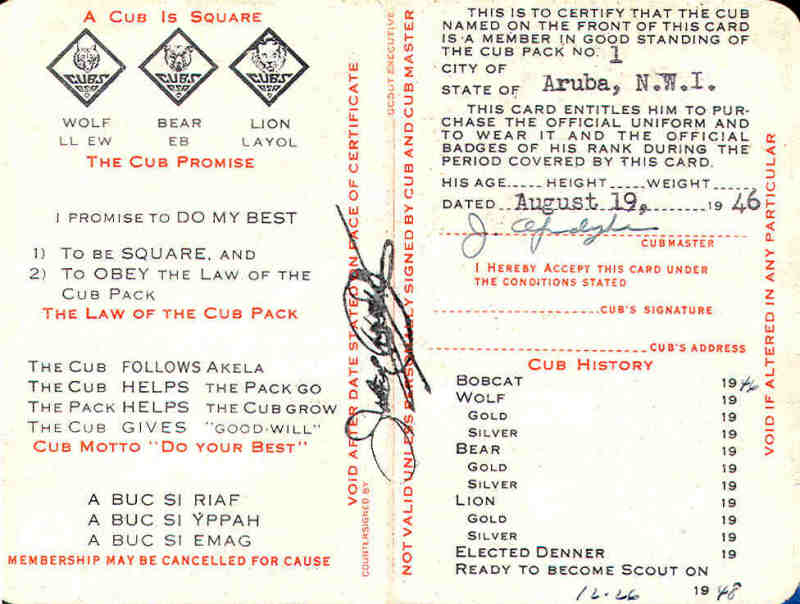 A CUB IS SQUARE
CUBS BSA
CUBS BSA
CUBS BSA
WOLF BEAR LION
LL EW EB LAYOL
THE CUB PROMISE
I PROMISE TO DO MY BEST
1) TO BE SQUARE, AND
2) TO OBEY THE LAW OF THE
CUB PACK
THE LAW OF THE CUB PACK
THE CUB FOLLOWS AKELA
THE CUB HELPS THE PACK GO
THE PACK HELPS THE CUB GROW
THE CUB GIVES "GOOD-WILL"
CUB MOTTO "DO YOUR BEST"
A BUC SI RIAF
A BUC SI YPPAH
A BUC SI EMAG
MEMBERSHIP MAY BE CANCELLED FOR CAUSE
VOID AFTER DATE STATED ON FACE OF CERTIFICATE
COUNTERSIGNED BY
SCOUT EXECUTIVE
NOT VALID UNLESS PERSONALLY SIGNED BY CUB AND CUBMASTER
THIS IS TO CERTIFY THAT THE CUB
NAMED ON THE FRONT OF THIS CARD
IS A MEMBER IN GOOD STANDING OF
THE CUB PACK NO. 1
CITY OF
STATE OF Aruba, N.W.I.
THIS CARD ENTITLES HIM TO PUR-
CHASE THE OFFICIAL UNIFORM AND
TO WEAR IT AND THE OFFICIAL
BADGES OF HIS RANK DURING THE
PERIOD COVERED BY THIS CARD.
HIS AGE HEIGHT WEIGHT
DATED August 19, 1946
J.
CUBMASTER
I HEREBY ACCEPT THIS CARD UNDER
THE CONDITIONS STATED
CUB'S SIGNATURE
CUB'S ADDRESS
CUB HISTORY
BOBCAT 1946
WOLF 19
GOLD 19
SILVER 19
BEAR 19
GOLD 19
SILVER 19
LION 19
GOLD 19
SILVER 19
ELECTED DENNER 19
READY TO BECOME SCOUT ON
12-26 1948
VOID IF ALTERED IN ANY PARTICULAR